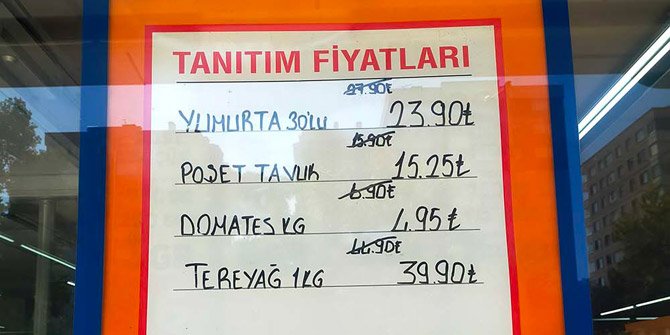 TANITIM FİYATLARI
27.90₺
YUMURTA 30'LU 23.90₺
15.90₺
POŞET TAVUK 15.25₺
6.90₺
DOMATES KG 4.95₺
44.90₺
TEREYAĞ 1KG 39.90₺